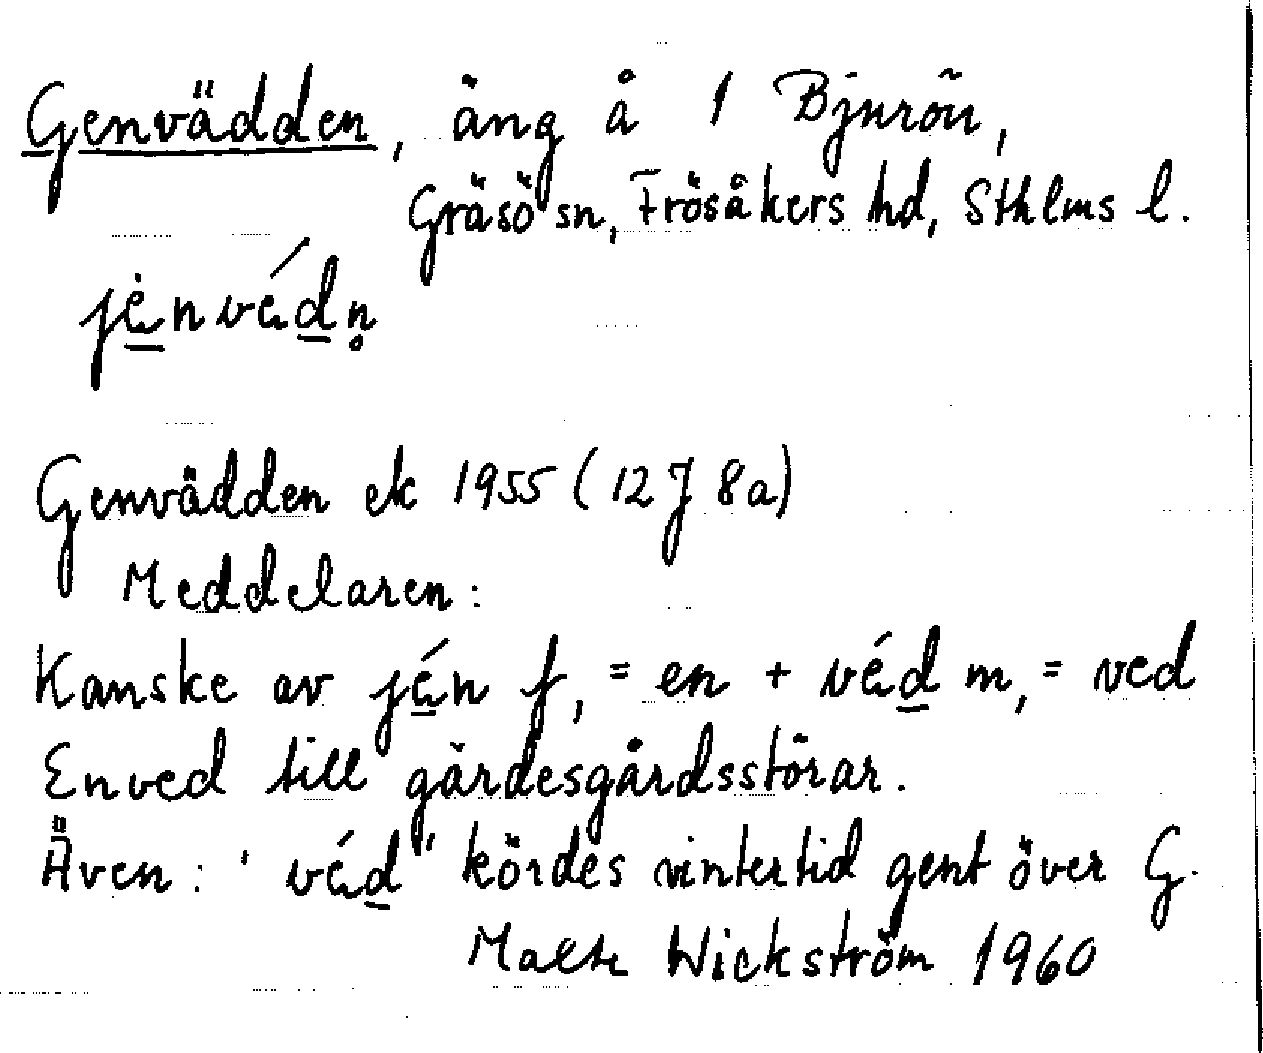 Genvädden, äng å 1 Bjurön,
Gräsö sn, Frösåkers hd, Sthlms l.
jènvédn̥
Genvädden ek 1955 (12J 8a)
Meddelaren:
Kanske av jén f, = en + véd m, = ved
Enved till gärdesgårdsstörar.
Även: "véd" kördes vintertid gent över G.
Malte Wickström 1960